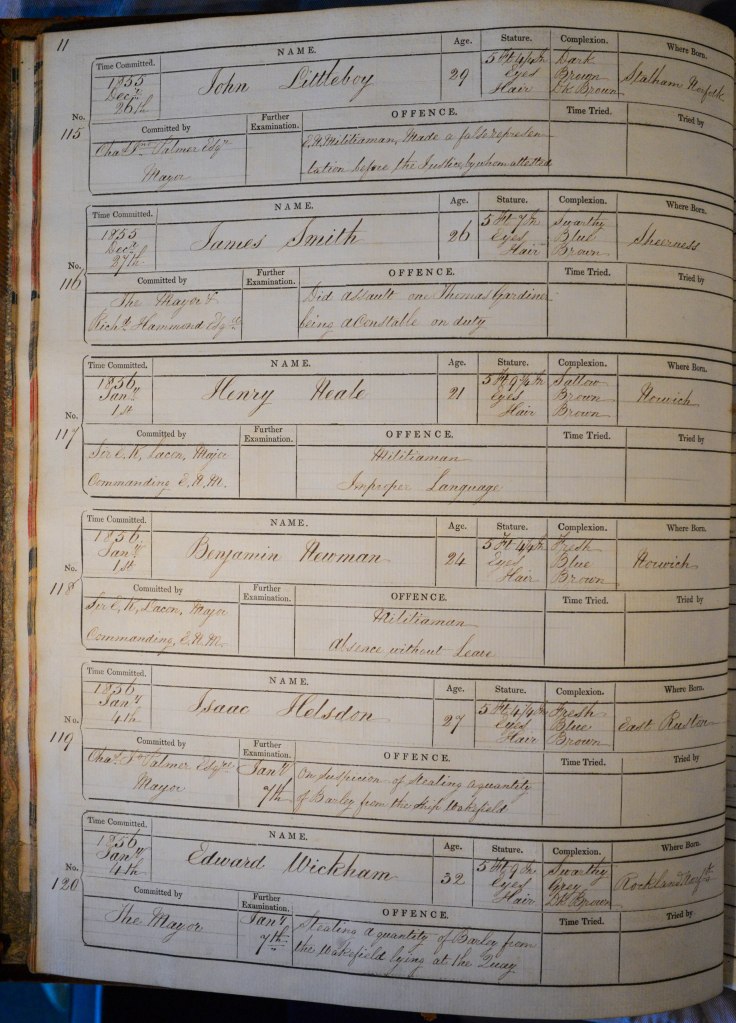 11
Time Committed. NAME. Age. Stature. Complexion. Where Born.
1855 John Littleboy 29 5 Ft 4¼ In Dark Stalham Norfolk
Decr Eyes Brown
26th Hair Dk Brown
No. 115
Committed by Further Examination. OFFENCE. Time Tried. Tried by
Chas Jno Palmer Esqr E.N. Militiaman, Made a false represen-
Mayor tation before the Justice by whom attested
Time Committed. NAME. Age. Stature. Complexion. Where Born.
1855 James Smith 26 5 Ft 7 In Swarthy Sheerness
Decr Eyes Blue
27th Hair Brown
No. 116
Committed by Further Examination. OFFENCE. Time Tried. Tried by
The Mayor & Did assault one Thomas Gardiner
Richd Hammond Esqre being a Constable on duty
Time Committed. NAME. Age. Stature. Complexion. Where Born.
1856 Henry Neale 21 5 Ft 9 In Sallow Norwich
Jany Eyes Brown
1st Hair Brown
No. 117
Committed by Further Examination. OFFENCE. Time Tried. Tried by
Sir E, K, Lacon, Major Militiaman
Commanding E. N. M. Improper Language
Time Committed. NAME. Age. Stature. Complexion. Where Born.
1856. Benjamin Newman 24 5 Ft 4¼ In Fresh Norwich
Jany Eyes Blue
1st Hair Brown
No. 118
Committed by Further Examination. OFFENCE. Time Tried. Tried by
Sir E, K, Lacon, Major Militiaman
Commanding, E. N. M. Absence without Leave
Time Committed. NAME. Age. Stature. Complexion. Where Born.
1856 Isaac Helsdon 27 5 Ft 4¼ In Fresh East Ruston
Jany Eyes Blue
4th Hair Brown
No. 119
Committed by Further Examination. OFFENCE. Time Tried. Tried by
Chas Jno Palmer Esqre Jany On suspicion of stealing a quantity
Mayor 7th of Barley from the ship Wakefield
Time Committed. NAME. Age. Stature. Complexion. Where Born.
1856 Edward Wickham 32 5 Ft 9 In Swarthy Rockland Norfk
Jany Eyes Grey
4th Hair Dk Brown
No. 120
Committed by Further Examination. OFFENCE. Time Tried. Tried by
The Mayor Jany Stealing a quantity of Barley from
7th the Wakefield lying at the Quay